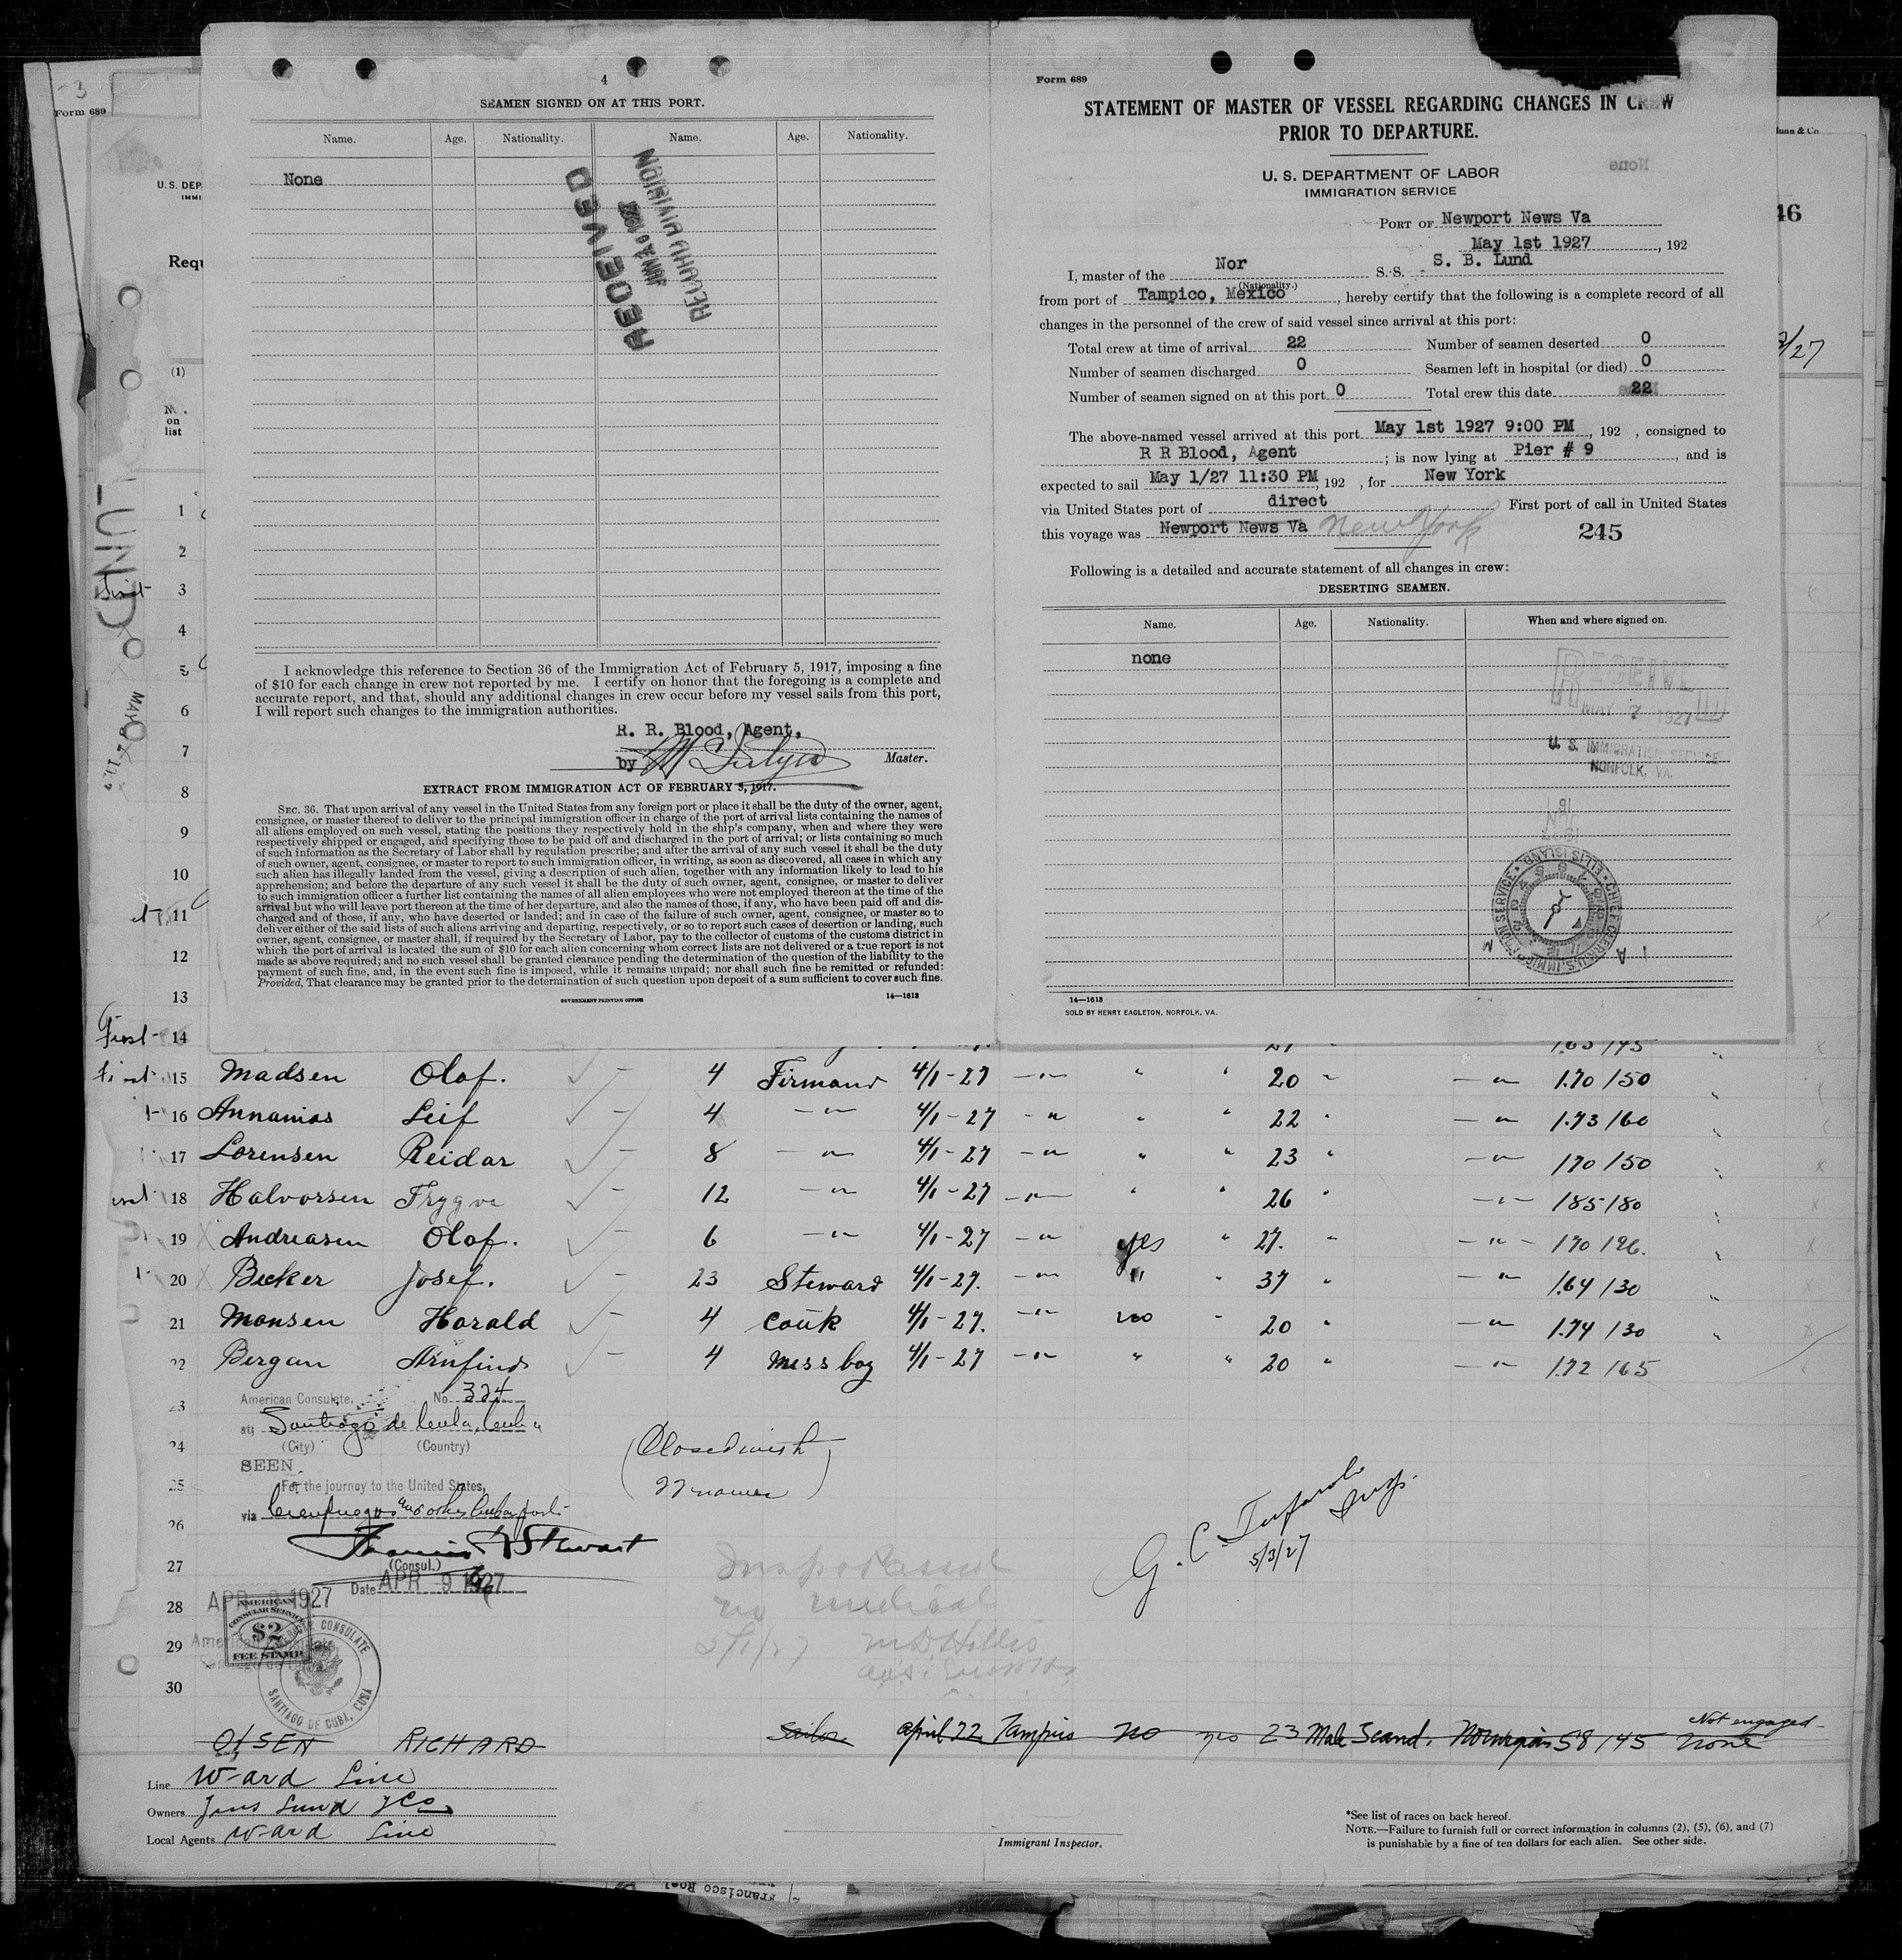 4
SEAMEN SIGNED ON AT THIS PORT.
Name. Age. Nationality. Name. Age. Nationality.
None
RECEIVED
JUN 9 1927
REGUHU HIVISION
I acknowledge this reference to Section 36 of the Immigration Act of February 5, 1917, imposing a fine
of $10 for each change in crew not reported by me. I certify on honor that the foregoing is a complete and
accurate report, and that, should any additional changes in crew occur before my vessel sails from this port,
I will report such changes to the immigration authorities.
R. R. Blood, Agent,
by
Master.
EXTRACT FROM IMMIGRATION ACT OF FEBRUARY 5, 1917.
SEC. 36. That upon arrival of any vessel in the United States from any foreign port or place it shall be the duty of the owner, agent,
consignee, or master thereof to deliver to the principal immigration officer in charge of the port of arrival lists containing the names of
all aliens employed on such vessel, stating the positions they respectively hold in the ship's company, when and where they were
respectively shipped or engaged, and specifying those to be paid off and discharged in the port of arrival; or lists containing so much
of such information as the Secretary of Labor shall by regulation prescribe; and after the arrival of any such vessel it shall be the duty
of such owner, agent, consignee, or master to report to such immigration officer, in writing, as soon as discovered, all cases in which any
such alien has illegally landed from the vessel, giving a description of such alien, together with any information likely to lead to his
apprehension; and before the departure of any such vessel it shall be the duty of such owner, agent, consignee, or master to deliver
to such immigration officer a further list containing the names of all alien employees who were not employed thereon at the time of the
arrival but who will leave port thereon at the time of her departure, and also the names of those, if any, who have been paid off and dis-
charged and of those, if any, who have deserted or landed; and in case of the failure of such owner, agent, consignee, or master so to
deliver either of the said lists of such aliens arriving and departing, respectively, or so to report such cases of desertion or landing, such
owner, agent, consignee, or master shall, if required by the Secretary of Labor, pay to the collector of customs of the customs district in
which the port of arrival is located the sum of $10 for each alien concerning whom correct lists are not delivered or a true report is not
made as above required; and no such vessel shall be granted clearance pending the determination of the question of the liability to the
payment of such fine, and, in the event such fine is imposed, while it remains unpaid; nor shall such fine be remitted or refunded:
Provided, That clearance may be granted prior to the determination of such question upon deposit of a sum sufficient to cover such fine.
GOVERNMENT PRINTING OFFICE
14—1613
Form 689
STATEMENT OF MASTER OF VESSEL REGARDING CHANGES IN CREW
PRIOR TO DEPARTURE.
None
U. S. DEPARTMENT OF LABOR
IMMIGRATION SERVICE
PORT OF Newport News Va
May 1st 1927, 192
I, master of the Nor S. S. S. B. Lund
(Nationality.)
from port of Tampico, Mexico, hereby certify that the following is a complete record of all
changes in the personnel of the crew of said vessel since arrival at this port:
Total crew at time of arrival 22 Number of seamen deserted 0
Number of seamen discharged 0 Seamen left in hospital (or died) 0
Number of seamen signed on at this port 0 Total crew this date 22
The above-named vessel arrived at this port May 1st 1927 9:00 PM, 192 , consigned to
R R Blood, Agent ; is now lying at Pier # 9, and is
expected to sail May 1/27 11:30 PM, 192 , for New York
via United States port of direct First port of call in United States
this voyage was Newport News Va New York
245
Following is a detailed and accurate statement of all changes in crew:
DESERTING SEAMEN.
Name. Age. Nationality. When and where signed on.
none
RECEIVED
MAY 7 1927
U. S. IMMIGRATION SERVICE
NORFOLK, VA.
CHIEF CLERK U.S. IMMIGRATION SERVICE · ELLIS ISLAND
14—1613
SOLD BY HENRY EAGLETON, NORFOLK, VA.
3
Form 689
U. S. DEP
IMMI
Requ
(1)
on
list
LUND
46
1
2
3
4
5
6
7
8
9
10
11
12
13
First 14
21 1.65 145
15 Madsen Olof. 4 Firmand 4/1-27 " " 20 " 1.70 150
16 Annanias Leif 4 " 4/1-27 " " 22 " 1.73 160
17 Lorensen Reidar 8 " 4/1-27 " " 23 " 170 150
18 Halvorsen Trygve 12 " 4/1-27 " " 26 " 185 180
19 Andreasen Olof. 6 " 4/1-27 yes " 27. " 170 196.
20 Becker Josef. 23 Steward 4/1-27. " " 37 " 1.64 130
21 Monsen Harald 4 Couk 4/1-27. no " 20 " 1.74 130
22 Bergan Arnfind 4 Mess boy 4/1-27 " " 20 " 1.72 165
23
24
25
26
27
28
29
30
American Consulate, No 324
at; Santiago de Cuba, Cuba
(City) (Country)
SEEN
For the journey to the United States,
via Cienfuegos and other Cuban ports
(Consul.)
Date APR 9 1927
APR 9 1927
AMERICAN CONSULAR SERVICE
$2
FEE STAMP
AMERICAN CONSULATE
SANTIAGO DE CUBA, CUBA
(Closed with
22 names)
Insp & Passed
no medical
5/1/27
G. C. Insp.
5/3/27
OLSEN RICHARD Sailor April 22 Tampico no yes 23 Male Scand. Norwegian 58 145 None
Not engaged
Line Ward Line
Owners Jens Lund & Co
Local Agents Ward Line
Immigrant Inspector.
*See list of races on back hereof.
NOTE.—Failure to furnish full or correct information in columns (2), (5), (6), and (7)
is punishable by a fine of ten dollars for each alien. See other side.
Francisco